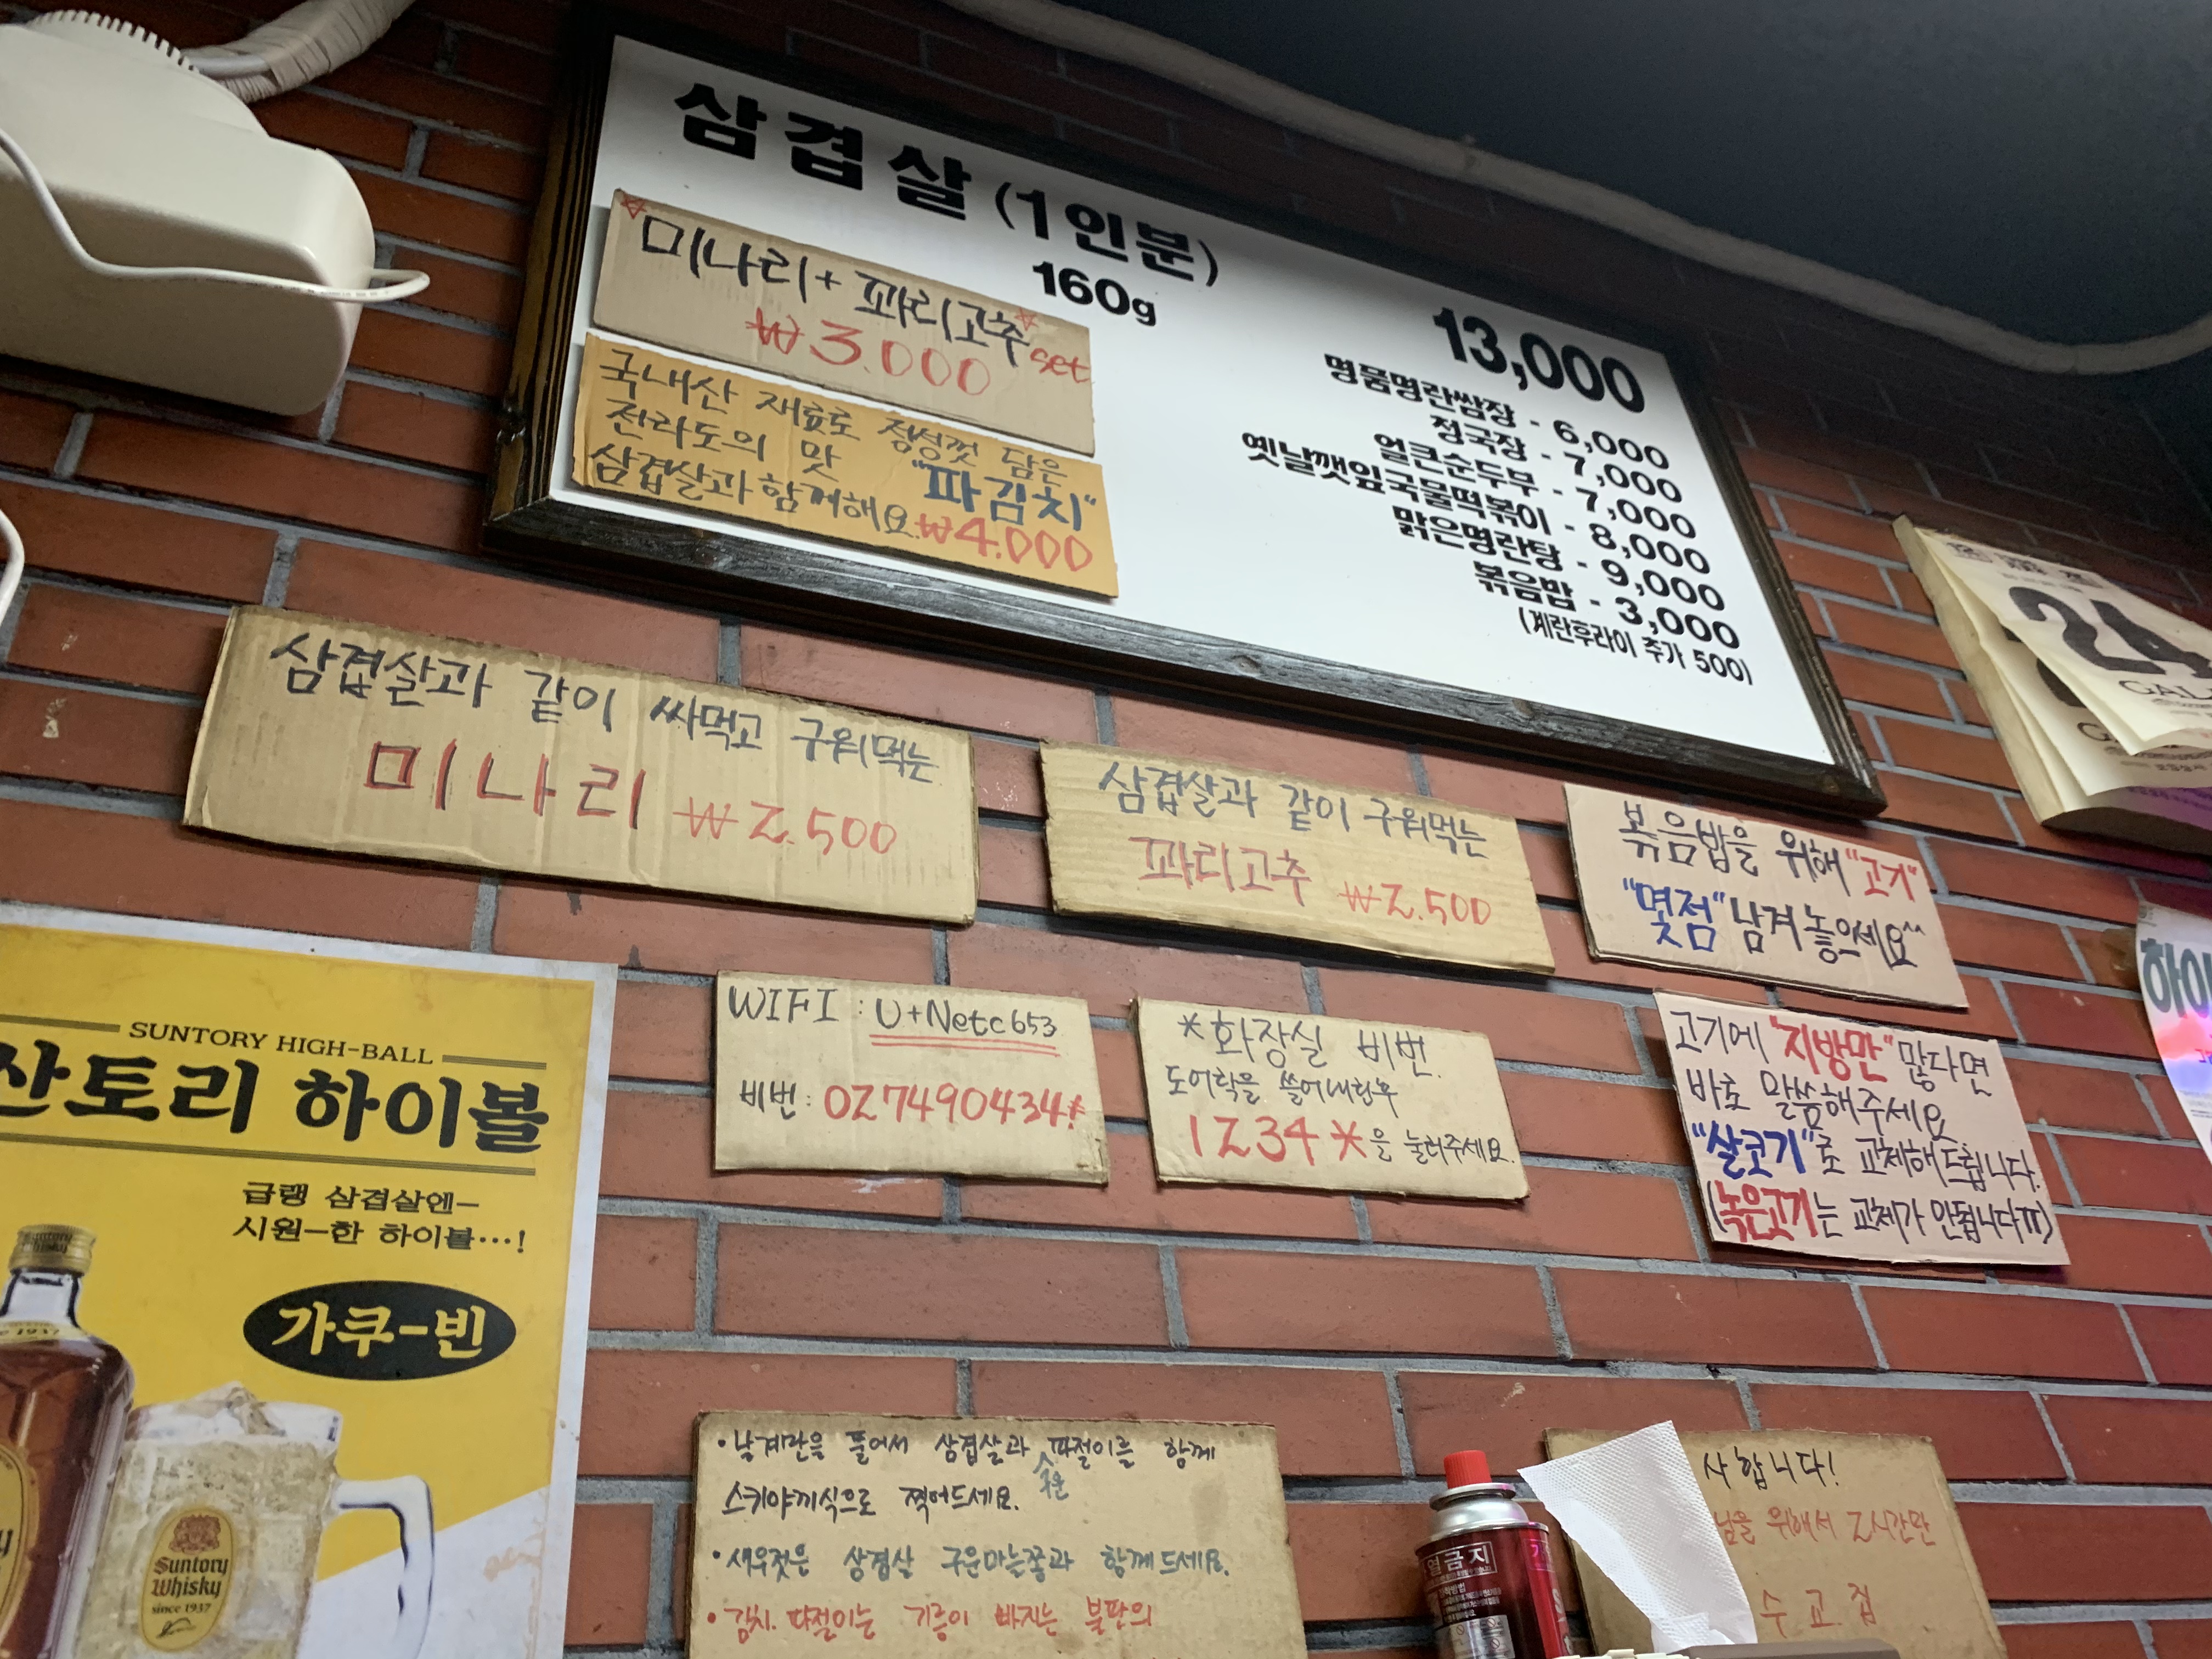 삼겹살 (1인분)
160g
13,000
미나리 + 꽈리고추 set
₩3.000
국내산 재료로 정성껏 담은
전라도의 맛 "파김치"
삼겹살과 함께해요. ₩4.000
명품명란쌈장 - 6,000
청국장 - 7,000
얼큰순두부 - 7,000
옛날깻잎국물떡볶이 - 8,000
맑은명란탕 - 9,000
볶음밥 - 3,000
(계란후라이 추가 500)
24
삼겹살과 같이 싸먹고 구워먹는
미나리 ₩2.500
삼겹살과 같이 구워먹는
꽈리고추 ₩2.500
볶음밥을 위해 "고기"
"몇점" 남겨놓으세요^^
WIFI : U+Netc653
비번 : 027490434#
*화장실 비번.
도어락을 쓸어내린후
1234*을 눌러주세요.
고기에 "지방만" 많다면
바로 말씀해주세요
"살코기"로 교체해드립니다.
(녹은고기는 교체가 안됩니다ㅠ)
SUNTORY HIGH-BALL
산토리 하이볼
급랭 삼겹살엔-
시원-한 하이볼...!
가쿠-빈
Suntory
Whisky
since 1937
1937
•날계란을 풀어서 삼겹살과 구운 파절이를 함께
스키야끼식으로 찍어드세요.
•새우젓은 삼겹살 구운마늘쫑과 함께드세요.
•김치.파절이는 기름이 빠지는 불판의
사합니다!
님을 위해서 2시간만
수교집
열금지
하이